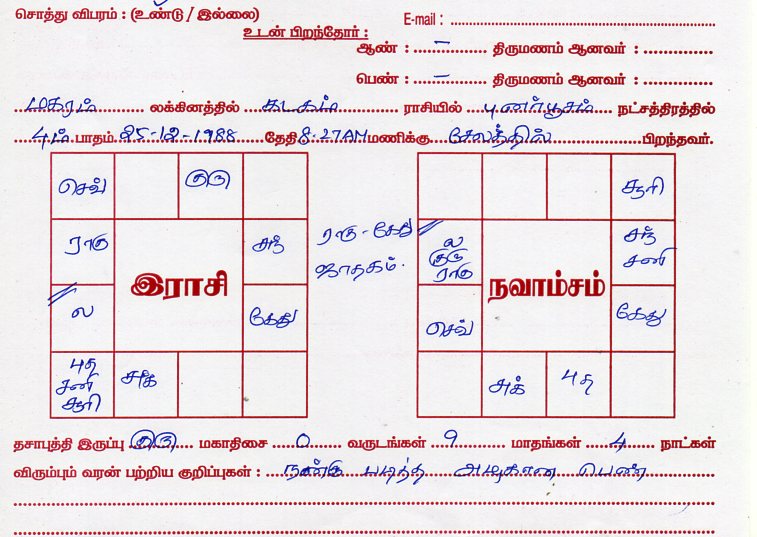 சொத்து விபரம் : (உண்டு / இல்லை)
E-mail :
உடன் பிறந்தோர் :
ஆண் : – திருமணம் ஆனவர் :
பெண் : – திருமணம் ஆனவர் :
மகரம் லக்கினத்தில் கடகம் ராசியில் புனர்பூசம் நட்சத்திரத்தில்
4ம் பாதம் 25-12-1988 தேதி 8.27AM மணிக்கு சேலத்தில் பிறந்தவர்.
செவ் குரு
ராகு சந்
இராசி
ல கேது
புத சனி சூரி சுக்
ராகு - கேது
ஜாதகம்.
சூரி
ல குரு ராகு சந் சனி
நவாம்சம்
செவ் கேது
சுக் புத
தசாபுத்தி இருப்பு குரு மகாதிசை 0 வருடங்கள் 9 மாதங்கள் 4 நாட்கள்
விரும்பும் வரன் பற்றிய குறிப்புகள் : நன்கு படித்த அழகான பெண்